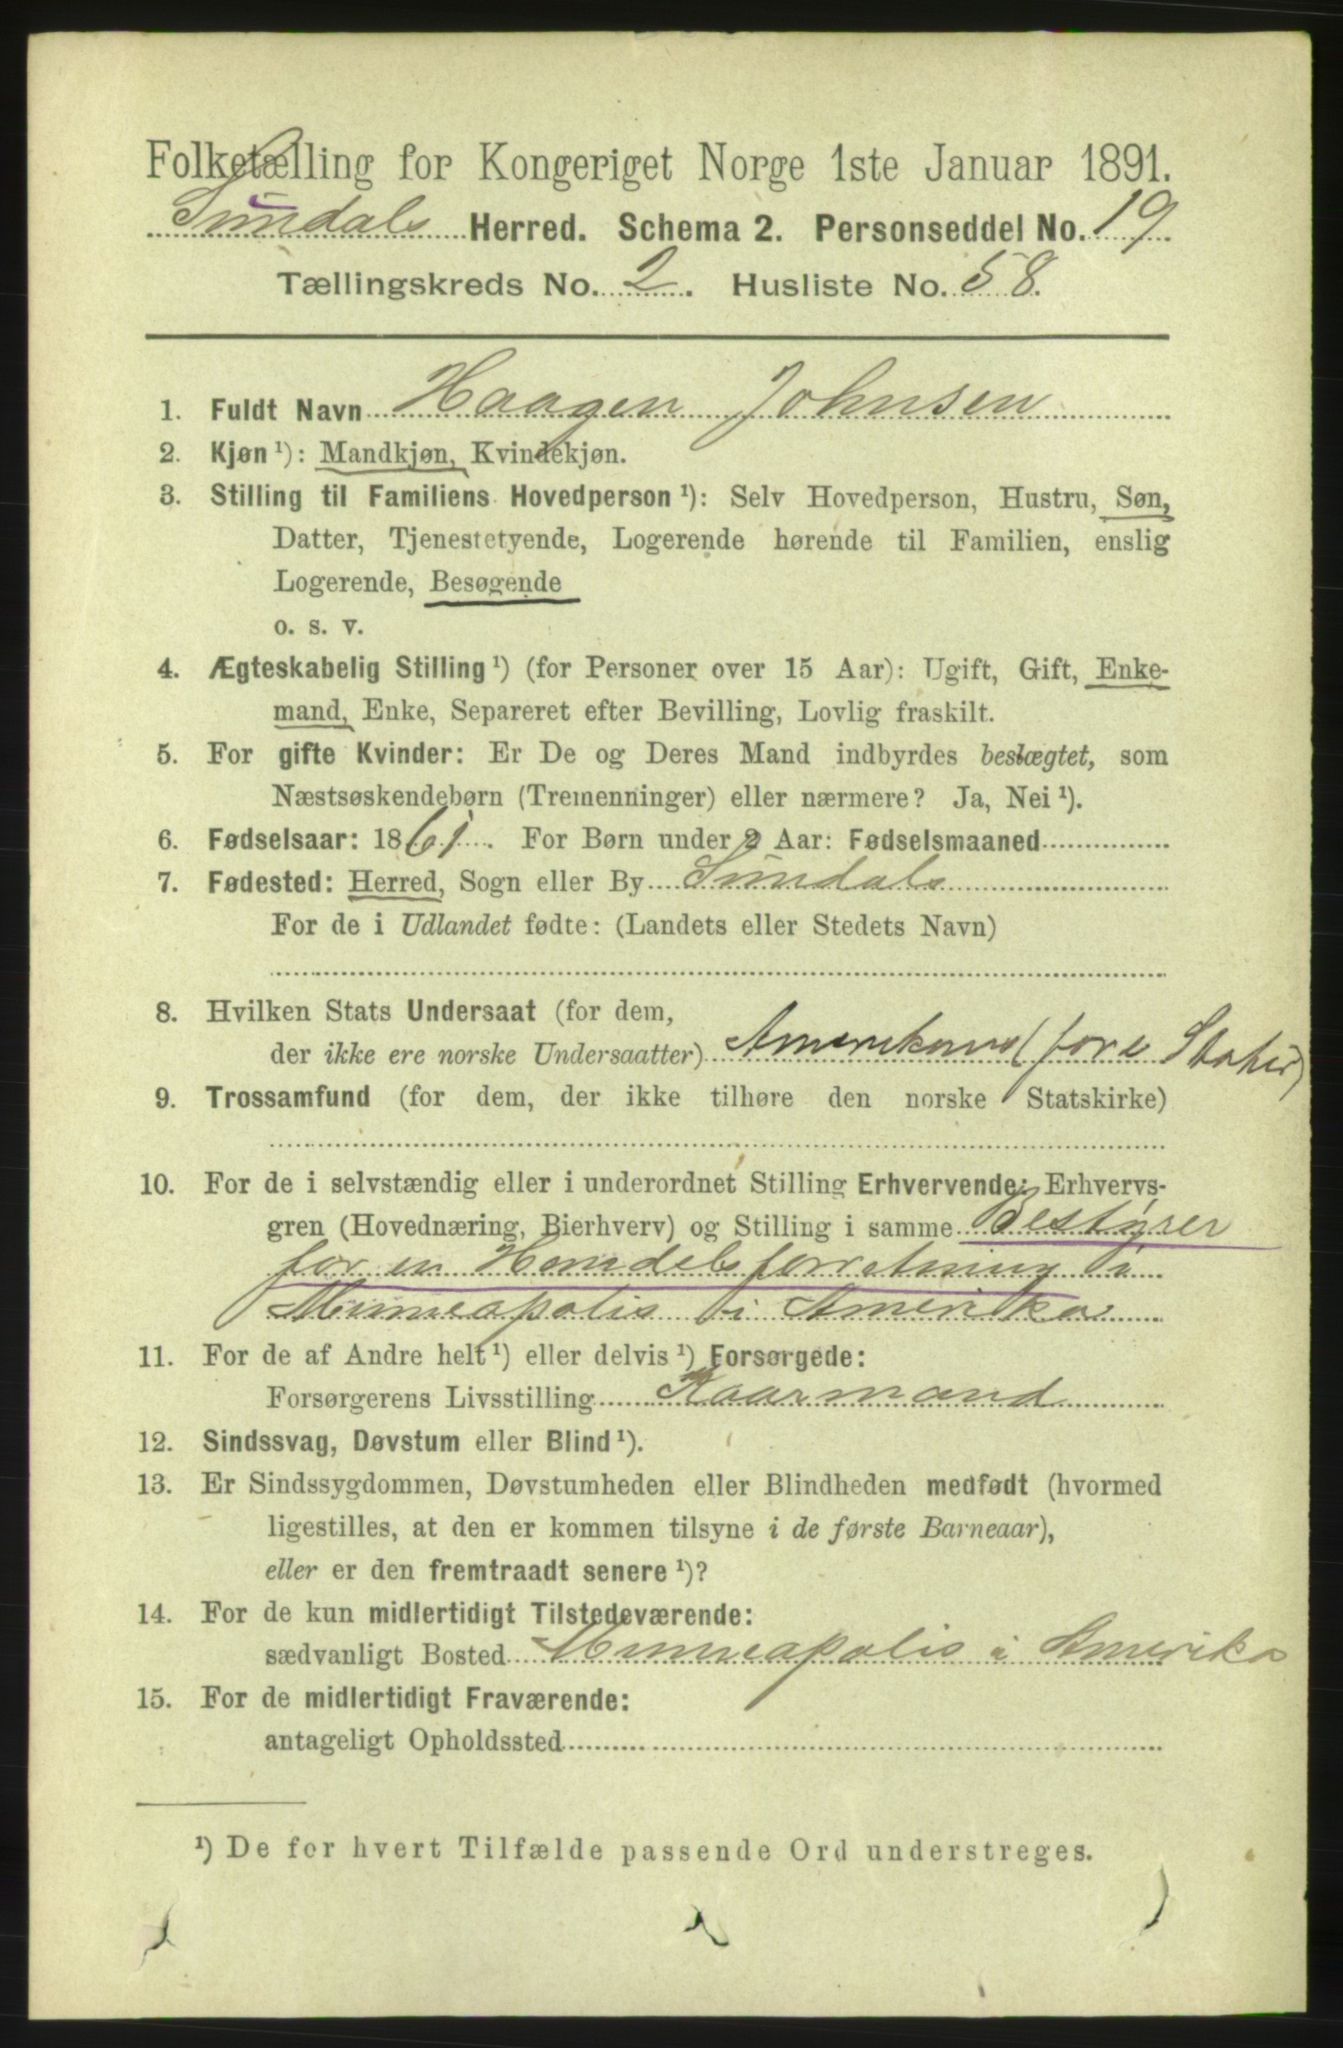 Folketælling for Kongeriget Norge 1ste Januar 1891.
Sundals Herred. Schema 2. Personseddel No. 19.
Tællingskreds No. 2. Husliste No. 58.
1. Fuldt Navn Haagen Johnsen
2. Kjøn ¹): Mandkjøn, Kvindekjøn.
3. Stilling til Familiens Hovedperson ¹): Selv Hovedperson, Hustru, Søn,
Datter, Tjenestetyende, Logerende hørende til Familien, enslig
Logerende, Besøgende
o. s. v.
4. Ægteskabelig Stilling ¹) (for Personer over 15 Aar): Ugift, Gift, Enke-
mand, Enke, Separeret efter Bevilling, Lovlig fraskilt.
5. For gifte Kvinder: Er De og Deres Mand indbyrdes beslægtet, som
Næstsøskendebørn (Tremenninger) eller nærmere? Ja, Nei ¹).
6. Fødselsaar: 1861. For Børn under 2 Aar: Fødselsmaaned
7. Fødested: Herred, Sogn eller By Sundals
For de i Udlandet fødte: (Landets eller Stedets Navn)
8. Hvilken Stats Undersaat (for dem,
der ikke ere norske Undersaatter) (fore Stater)
9. Trossamfund (for dem, der ikke tilhøre den norske Statskirke)
10. For de i selvstændig eller i underordnet Stilling Erhvervende: Erhvervs-
gren (Hovednæring, Bierhverv) og Stilling i samme Bestyrer
for en Handelsforretning i
Minneapolis i Amerika
11. For de af Andre helt ¹) eller delvis ¹) Forsørgede:
Forsørgerens Livsstilling Kaarmand
12. Sindssvag, Døvstum eller Blind ¹).
13. Er Sindssygdommen, Døvstumheden eller Blindheden medfødt (hvormed
ligestilles, at den er kommen tilsyne i de første Barneaar),
eller er den fremtraadt senere ¹)?
14. For de kun midlertidigt Tilstedeværende:
sædvanligt Bosted Minneapolis i Amerika
15. For de midlertidigt Fraværende:
antageligt Opholdssted
¹) De for hvert Tilfælde passende Ord understreges.